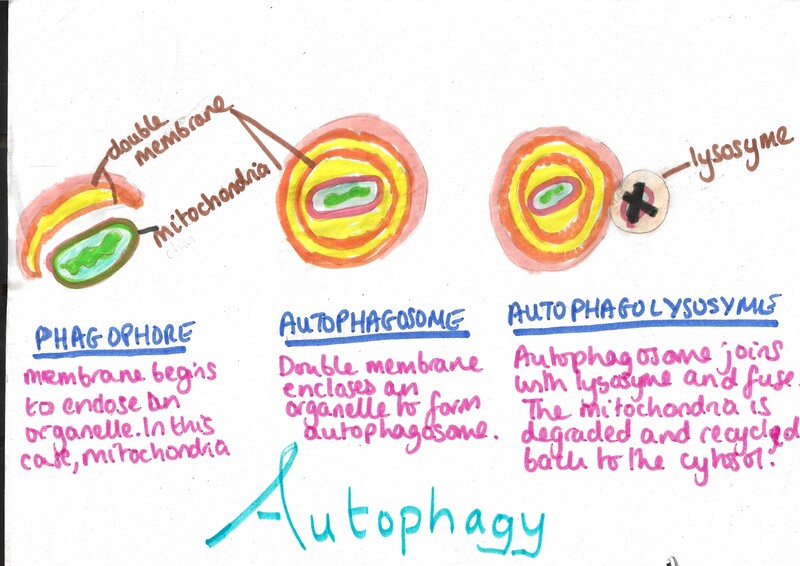 double
membrane
mitochondria
lysosyme
PHAGOPHORE
membrane begins
to enclose an
organelle. In this
case, mitochondria
AUTOPHAGOSOME
Double membrane
encloses an
organelle to form
autophagosome.
AUTOPHAGOLYSOSYME
Autophagosome joins
with lysosyme and fuse.
The mitochondria is
degraded and recycled
back to the cytosol.
Autophagy